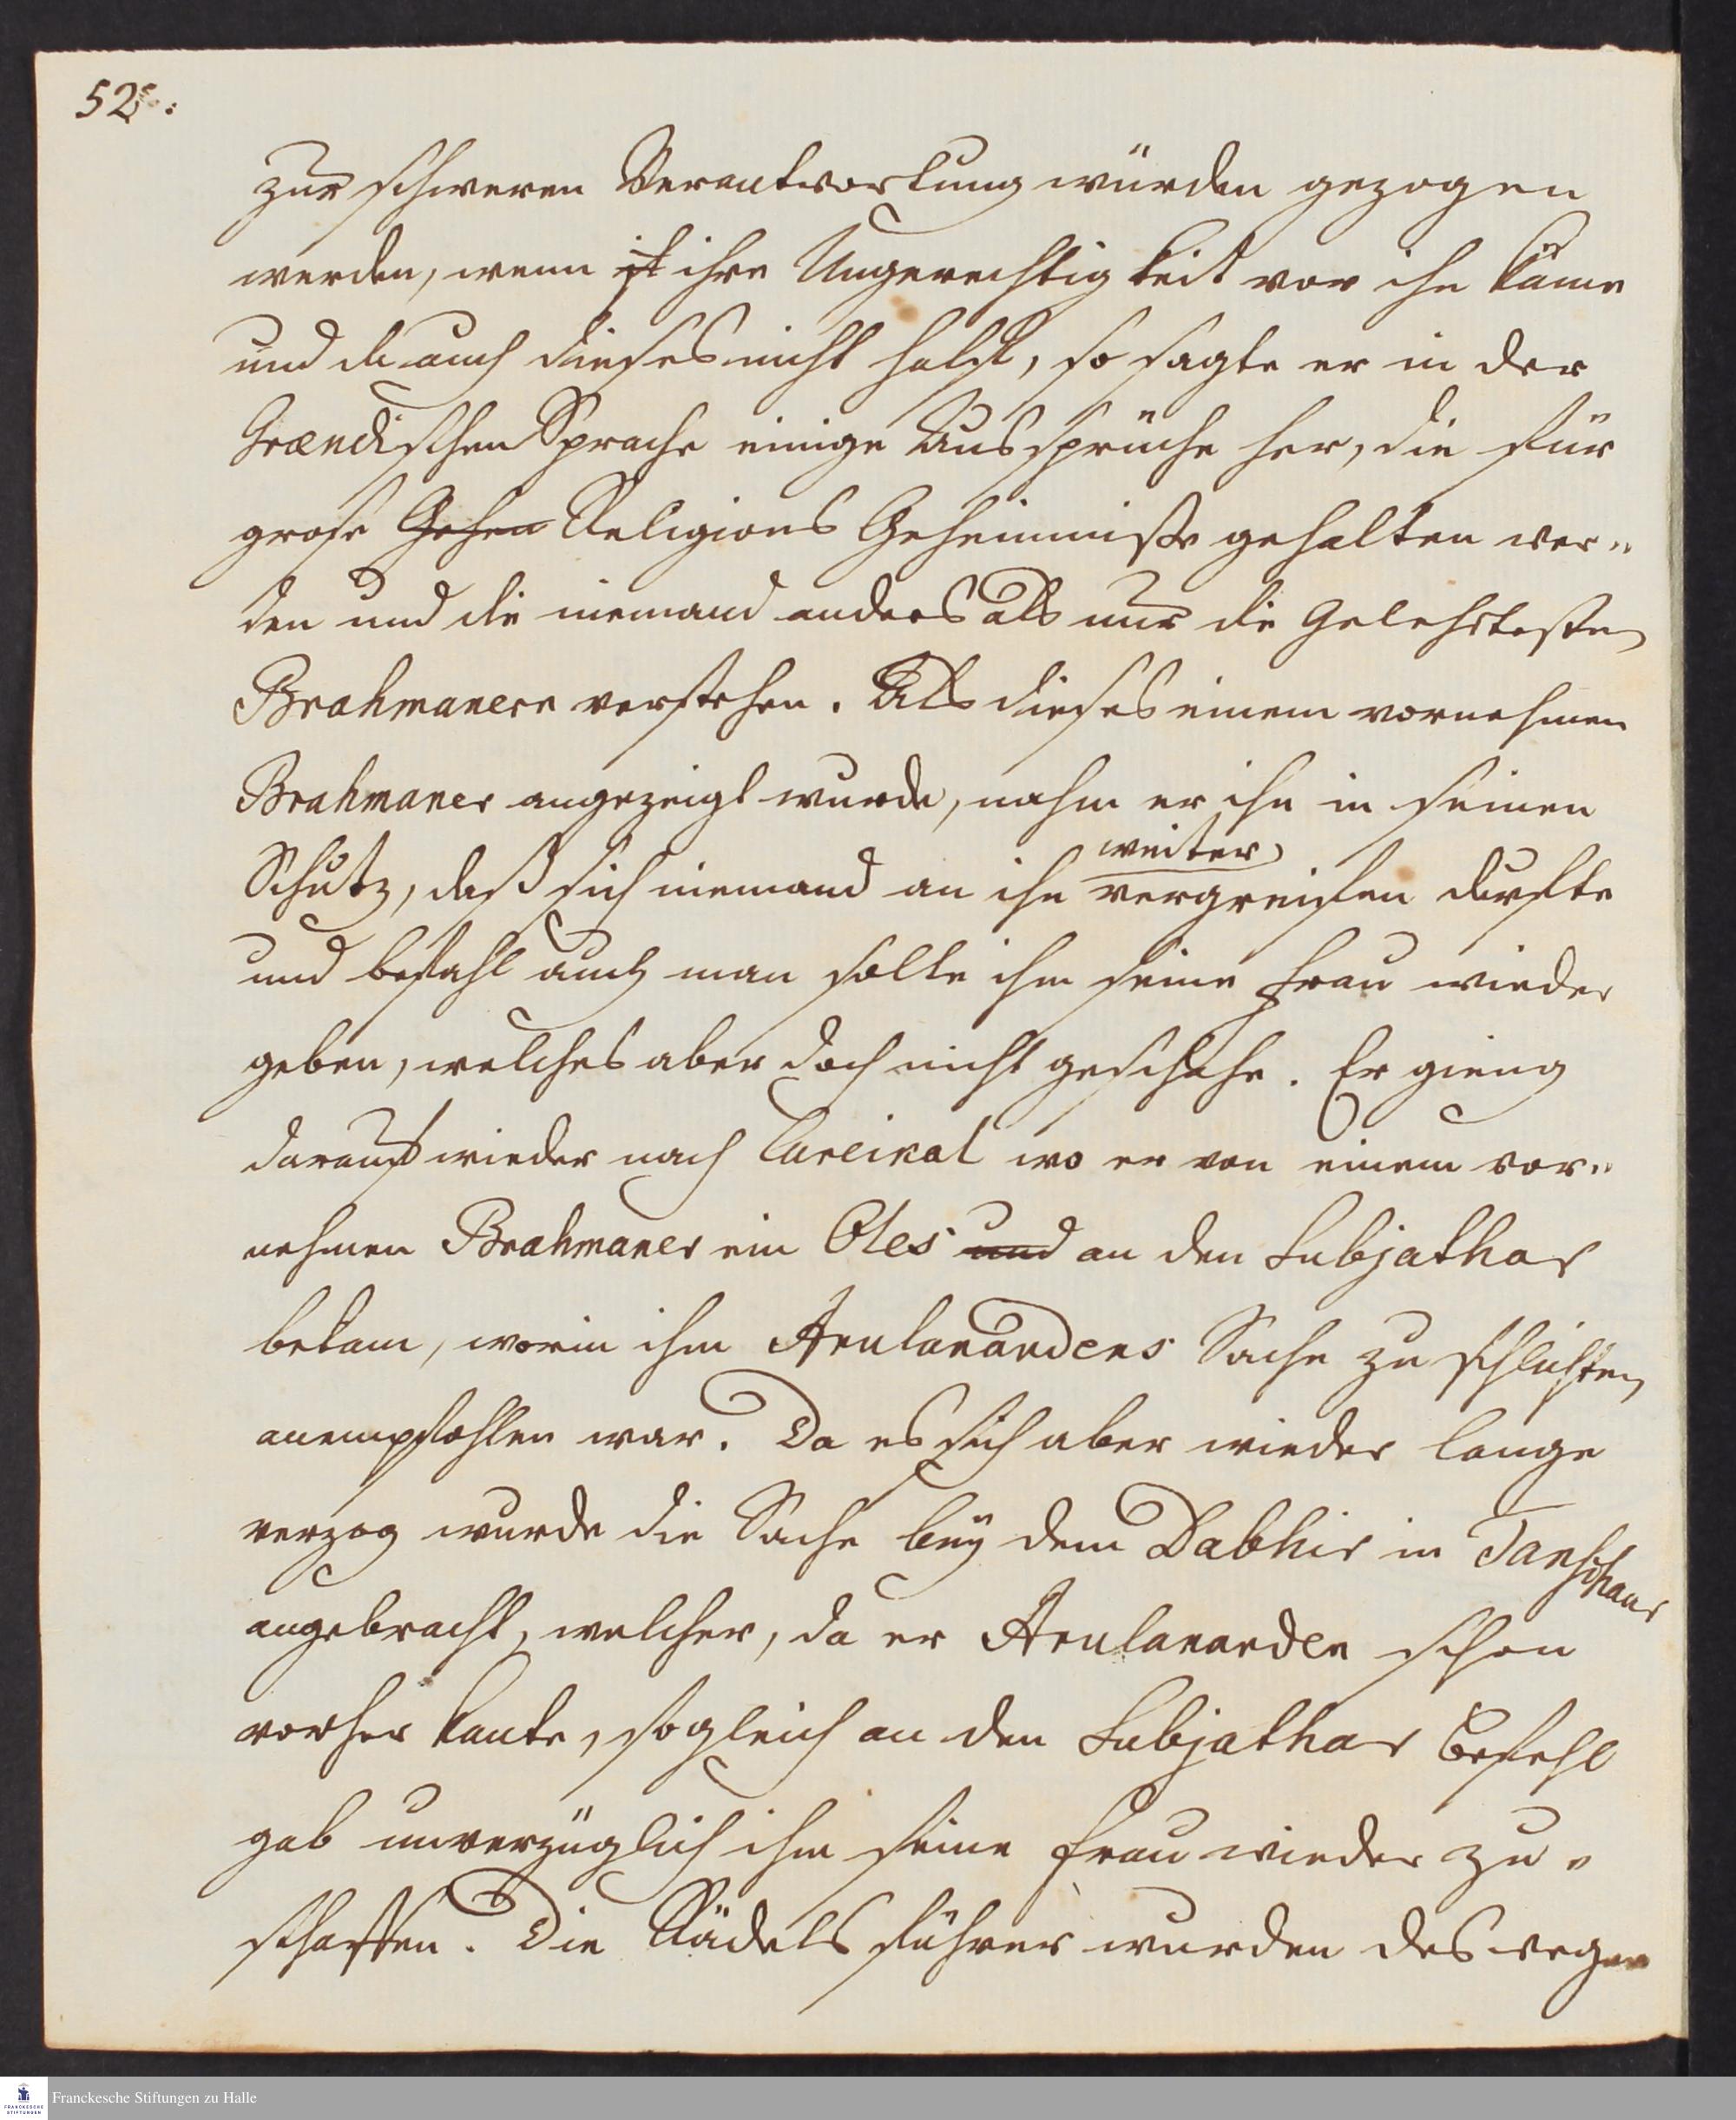 52.
zur schweren Verantwortung würden gezogen
werden, wenn ist ihre Ungerechtigkeit vor ihn käme
und da auch dieses nicht halff, so sagte er in der
Grændischen Sprache einige Aussprüche her, die für
große Gehen Religions Geheimniße gehalten wer„
den und die niemand anders als nur die Gelehrtesten
Brahmanern verstehen. Als dieses einem vornehmen
Brahmaner angezeigt wurde, nahm er ihn in seinen
weiter
Schutz, daß sich niemand an ihn vergreifen durfte
und befahl auch man solle ihm seine Frau wieder
geben, welches aber doch nicht geschehe. Er gieng
darauf wieder nach Careikal wo er von einem vor„
nehmen Brahmaner ein Oles und an den Subjathar
bekam, worin ihm Arulanandens Sache zu schlichten
anempfohlen war. Da es sich aber wieder lange
verzog wurde die Sache bey dem Dabhir in Tanschaur
angebracht, welcher, da er Arulananden schon
vorher kante, sogleich an den Subjathar Befehl
gab unverzüglich ihm seine Frau wieder zu„
schaffen. Die Rädels führer wurden des wegen
Franckesche Stiftungen zu Halle